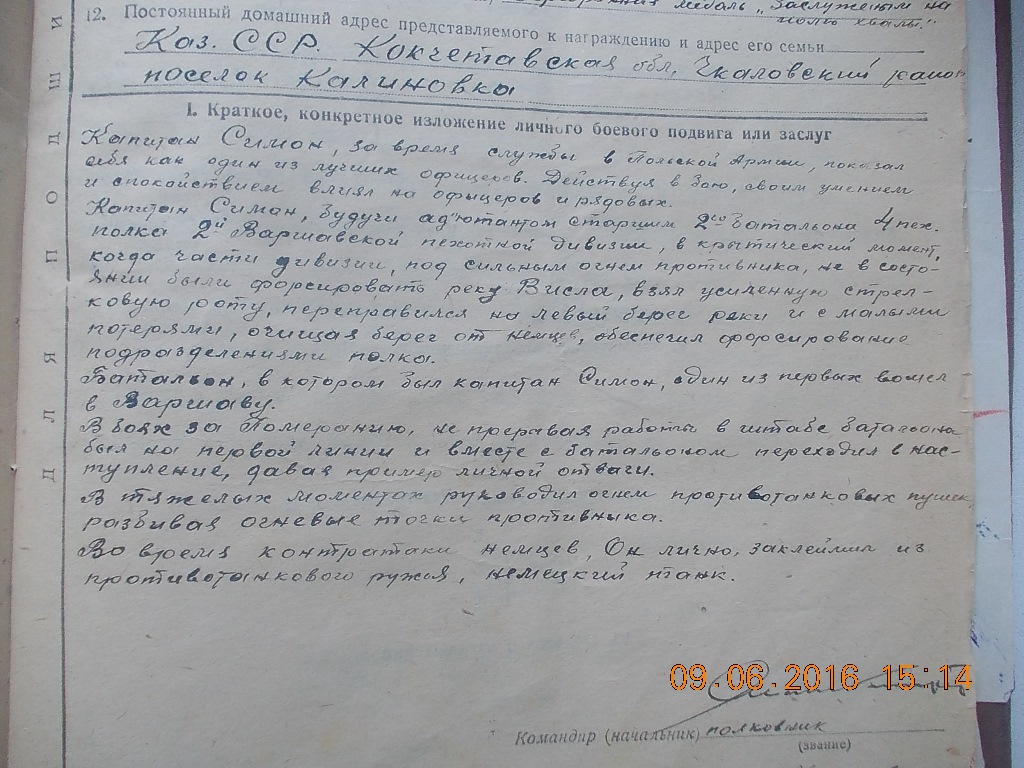 медаль „Заслуженым на
полю хвалы."
12. Постоянный домашний адрес представляемого к награждению и адрес его семьи
Каз. ССР. Кокчетавская обл, Чкаловский район
поселок Калиновка
I. Краткое, конкретное изложение личного боевого подвига или заслуг
Капитан Симон, за время службы в Польской Армии, показал
себя как один из лучших офицеров. Действуя в бою, своим умением
и спокойствием влиял на офыцеров и рядовых.
Капитан Симон, будучи ад'ютантом старшим 2го батальона 4 пех.
полка 2й Варшавской пехотной дивизии, в крытический момент,
когда части дивизии, под сильным огнем противника, не в состо-
янии были форсировать реку Висла, взял усиленную стрел-
ковую роту, переправился на левый берег реки и с малыми
потерями, очищая берег от немцев, обеспечил форсирование
подразделениями полка.
Батальон, в котором был капитан Симон, один из первых вошел
в Варшаву.
В боях за Померанию, не преравая работы в штабе батальона
был на первой линии и вместе с батальоном переходил в нас-
тупление, давая пример личной отваги.
В тяжелых моментах руководил огнем противотанковых пушек,
разбивая огневые точки противника.
Во время контратаки немцев, Он лично, заклеймил из
противотанкового ружья, немецкий танк.
09.06.2016 15:14
Командир (начальник) полковник
(звание)
ДЛЯ ПОДШИ